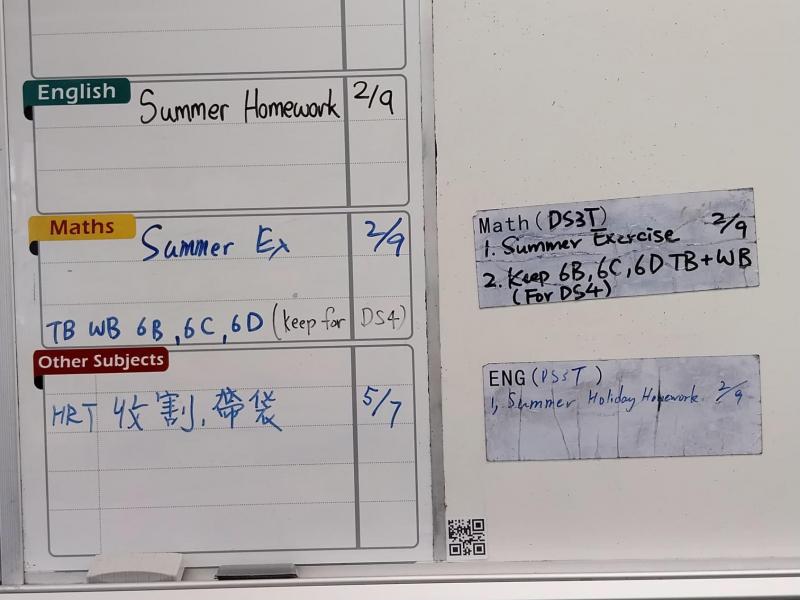 English
Summer Homework 2/9
Maths
Summer Ex 2/9
TB WB 6B, 6C, 6D (keep for DS4)
Other Subjects
HRT 收割, 帶袋 5/7
Math (DS3T) 2/9
1. Summer Exercise
2. Keep 6B, 6C, 6D TB+WB
(For DS4)
ENG (DS3T)
1, Summer Holiday Homework 2/9